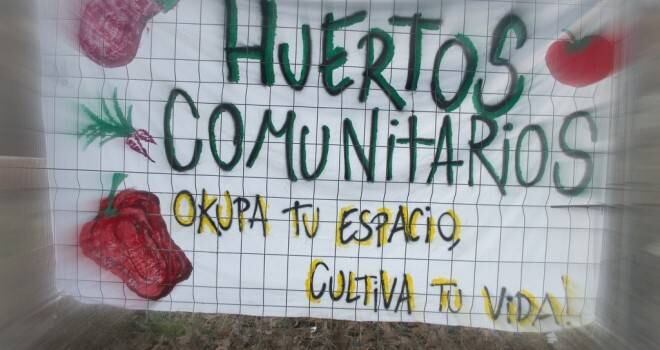 HUERTOS
COMUNITARIOS
OKUPA TU ESPACIO,
CULTIVA TU VIDA!